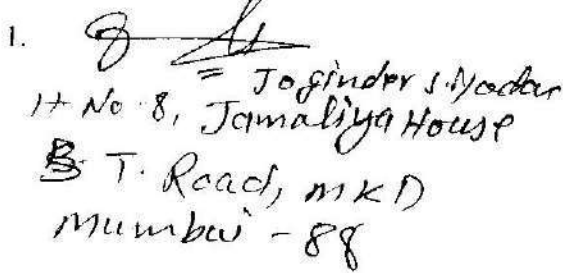 1.
Joginder S. Yadav
H No. 8, Jamaliya House
B. T. Road, MKD
Mumbai - 88